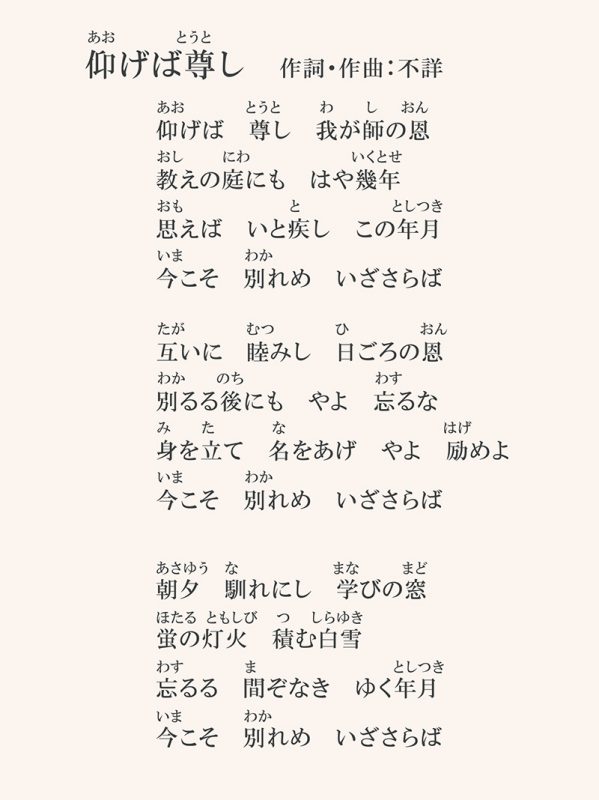 あお とうと
仰げば尊し 作詞・作曲：不詳
あお とうと わ し おん
仰げば 尊し 我が師の恩
おし にわ いくとせ
教えの庭にも はや幾年
おも と としつき
思えば いと疾し この年月
いま わか
今こそ 別れめ いざさらば
たが むつ ひ おん
互いに 睦みし 日ごろの恩
わか のち わす
別るる後にも やよ 忘るな
み た な はげ
身を立て 名をあげ やよ 励めよ
いま わか
今こそ 別れめ いざさらば
あさゆう な まな まど
朝夕 馴れにし 学びの窓
ほたる ともしび つ しらゆき
蛍の灯火 積む白雪
わす ま としつき
忘るる 間ぞなき ゆく年月
いま わか
今こそ 別れめ いざさらば